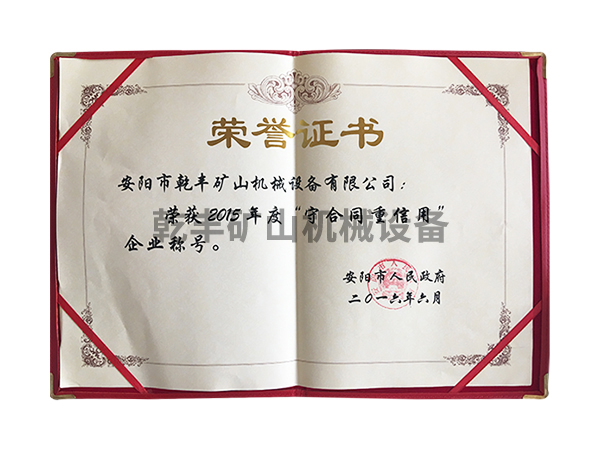 荣誉证书
安阳市乾丰矿山机械设备有限公司：
荣获2015年度“守合同重信用”
乾丰矿山机械设备
企业称号。
安阳市人民政府
二〇一六年六月